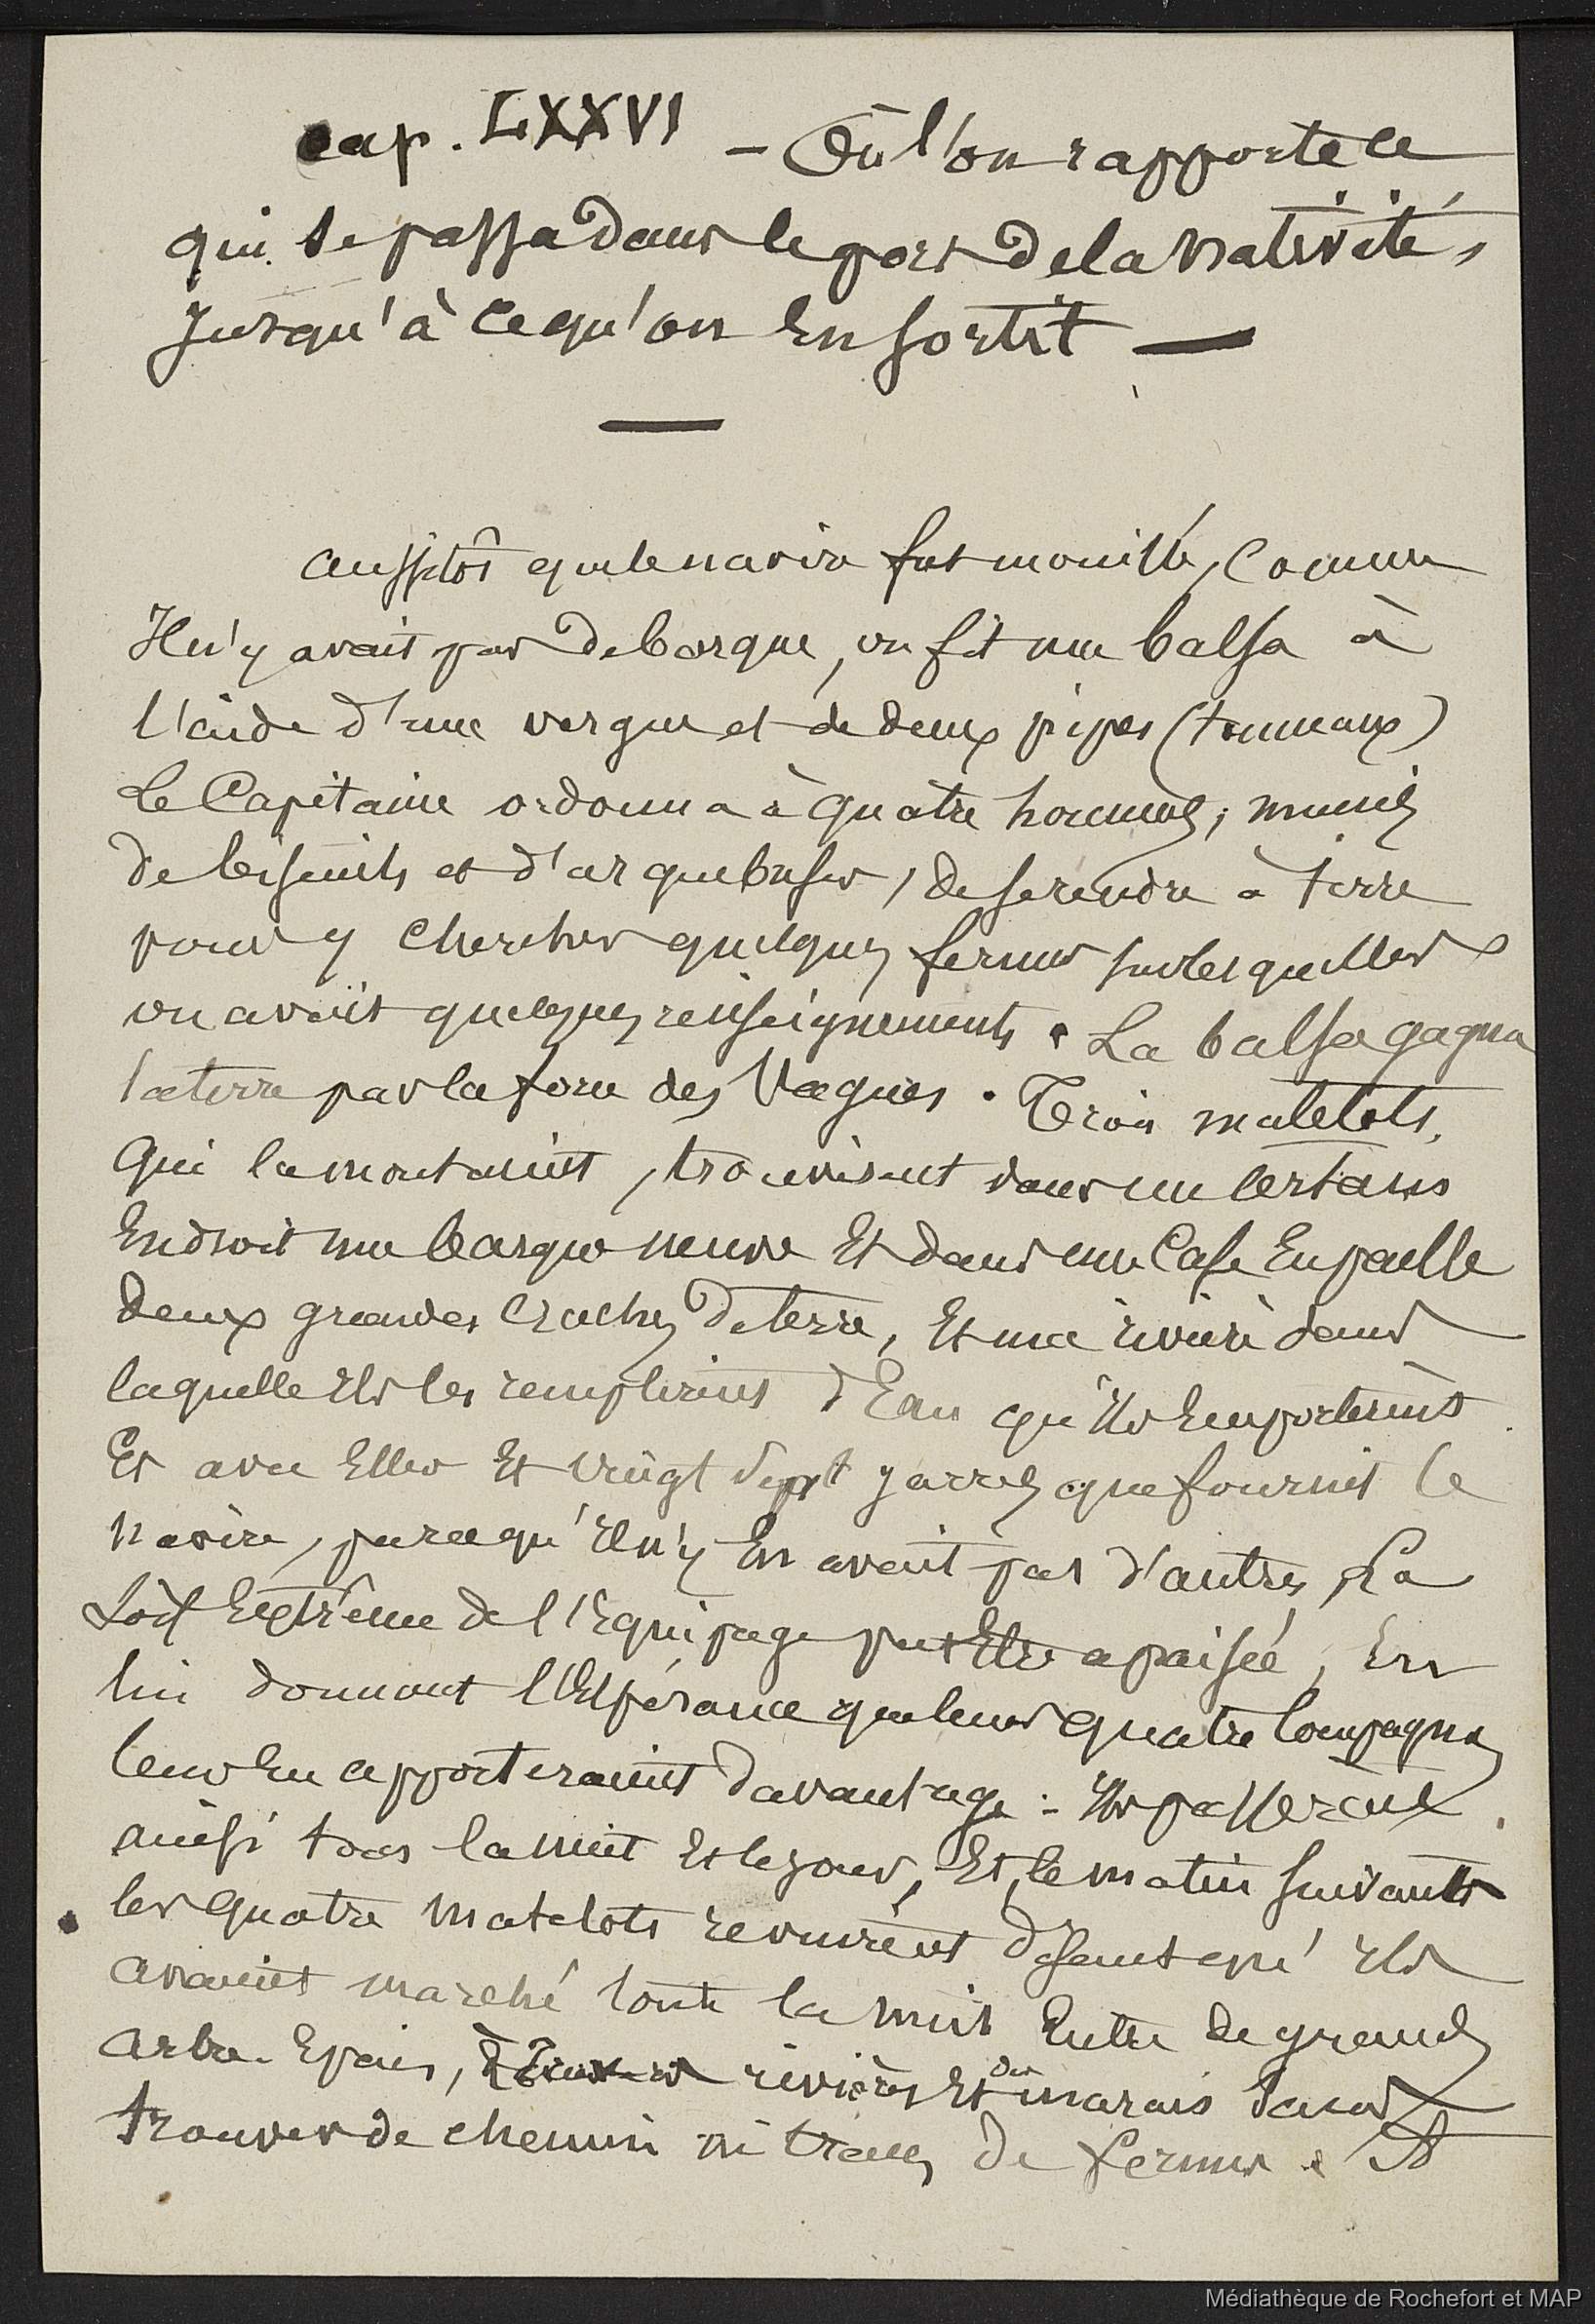 cap. LXXVI – Où l'on rapporte ce
qui se passa dans le port de la Nativité,
jusqu'à ce qu'on en sortit —
aussitôt que le navire fut mouillé, comme
il n'y avait pas de barque, on fit une balsa à
l'aide d'une vergue et de deux pipes (tonneaux)
Le Capitaine ordonna à quatre hommes, munis
de biscuits et d'arquebuses, de se rendre à terre
pour y chercher quelques fermes sur lesquelles
on avait quelques renseignements. La balsa gagna
la terre par la force des vagues. Trois matelots,
qui la montaient, trouvèrent dans un certain
endroit une barque neuve et dans une case en paille
deux grandes cruches de terre, et une rivière dans
laquelle ils les remplirent d'eau qu'ils emportèrent
et avec elles et vingt sept jarres que fournit le
navire, parce qu'il n'y en avait pas d'autres, la
soif extrême de l'équipage put être apaisée, en
lui donnant l'espérance que leurs quatre compagnons
leur en apporteraient davantage : Ils passèrent
ainsi tous la nuit et le jour, et le matin suivant
les quatre matelots revinrent disant qu'ils
avaient marché toute la nuit entre de grands
arbres épais, rivières et des marais sans
trouver de chemin ni traces de fermes. Et
Médiathèque de Rochefort et MAP